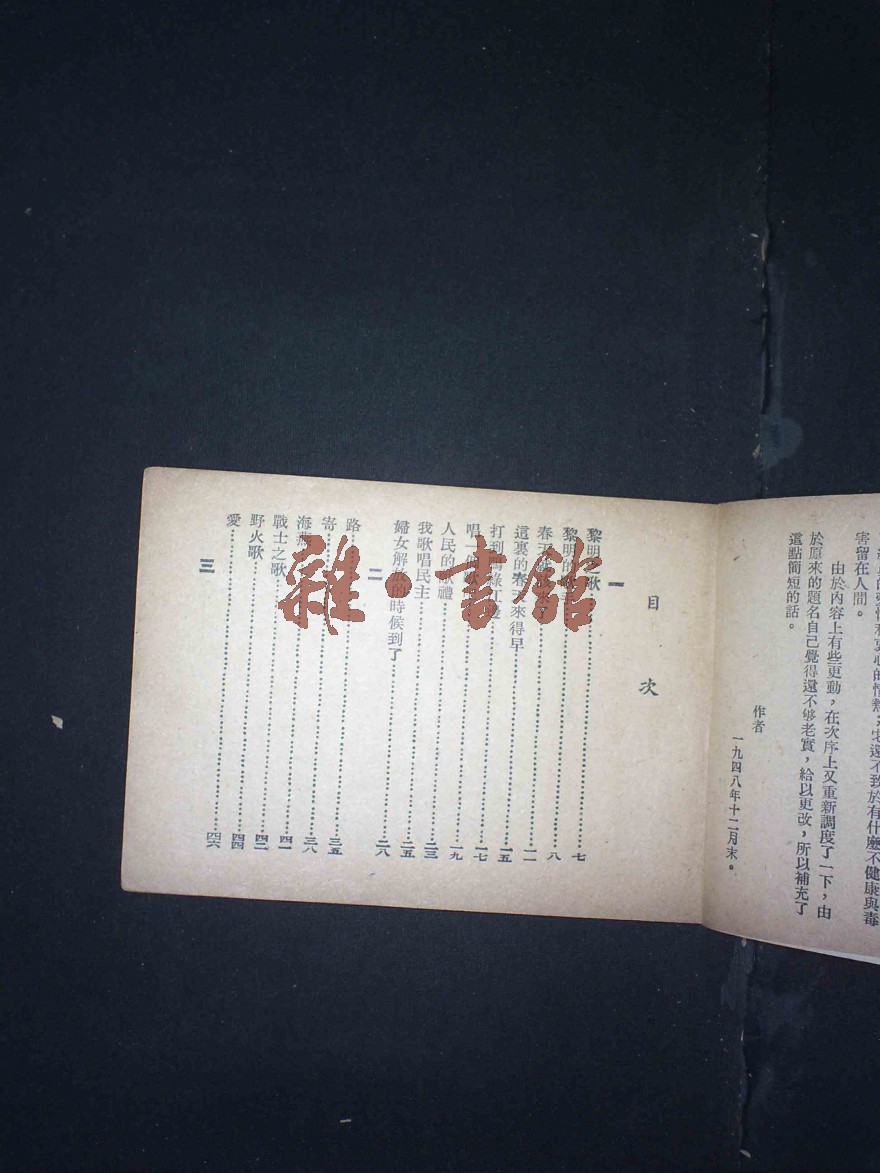 不致於有什麼不健康與毒
害留在人間。
由於內容上有些更動，在次序上又重新調度了一下，由
於原來的題名自己覺得還不够老實，給以更改，所以補充了
這點簡短的話。
作者
一九四八年十二月末。
目次
一
黎明之歌……七
黎明的……八
春天……一一
這裏的春天來得早……一五
打到……一七
唱一……一九
人民的獻禮……二三
我歌唱民主……二五
婦女解放的時候到了……二八
二
路……三五
寄……三八
海燕……四一
戰士之歌……四二
野火歌……四四
愛……四六
三
雜·書館